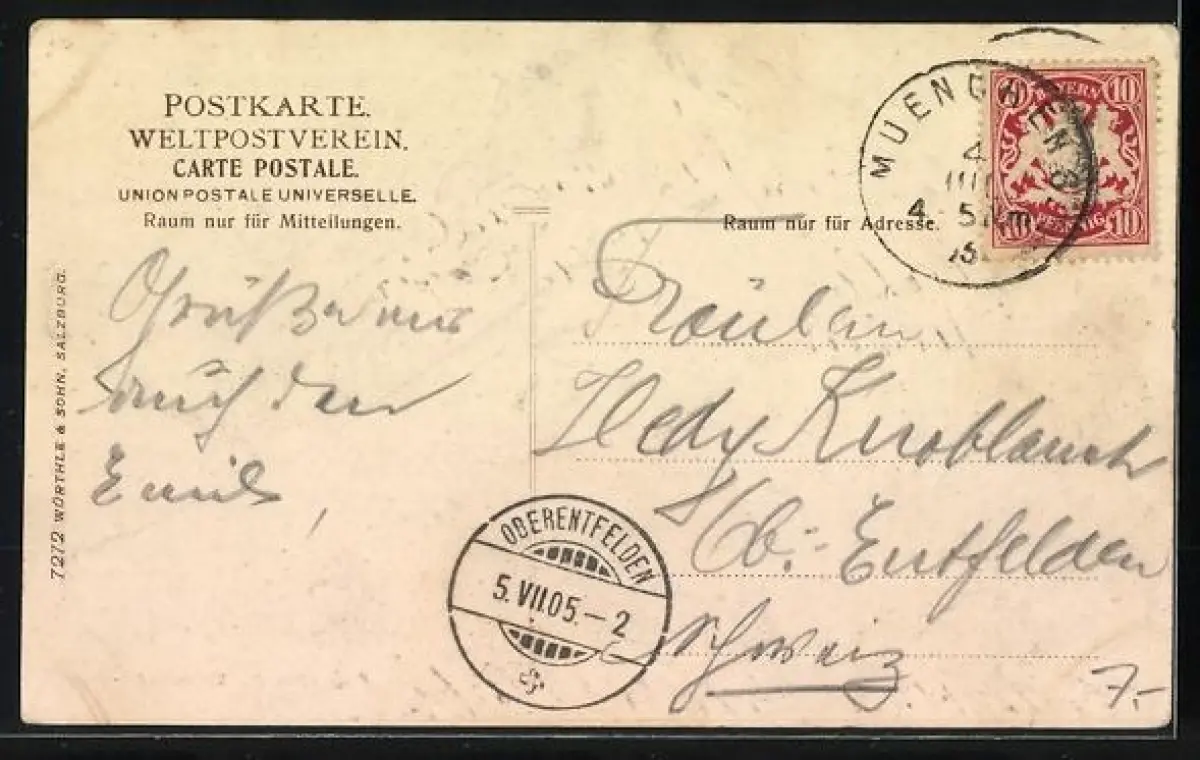 POSTKARTE.
WELTPOSTVEREIN.
CARTE POSTALE.
UNION POSTALE UNIVERSELLE.
Raum nur für Mitteilungen.
Raum nur für Adresse.
MUENCHEN
4
4 5
BAYERN
10 10
PFENNIG
10 10
7272 WÖRTHLE & SOHN, SALZBURG.
Grüße
auch den
Emil,
Fräulein
Hedy Knoblauch
Ob: Entfelden
Schweiz
OBERENTFELDEN
5.VII.05.–2
7.-